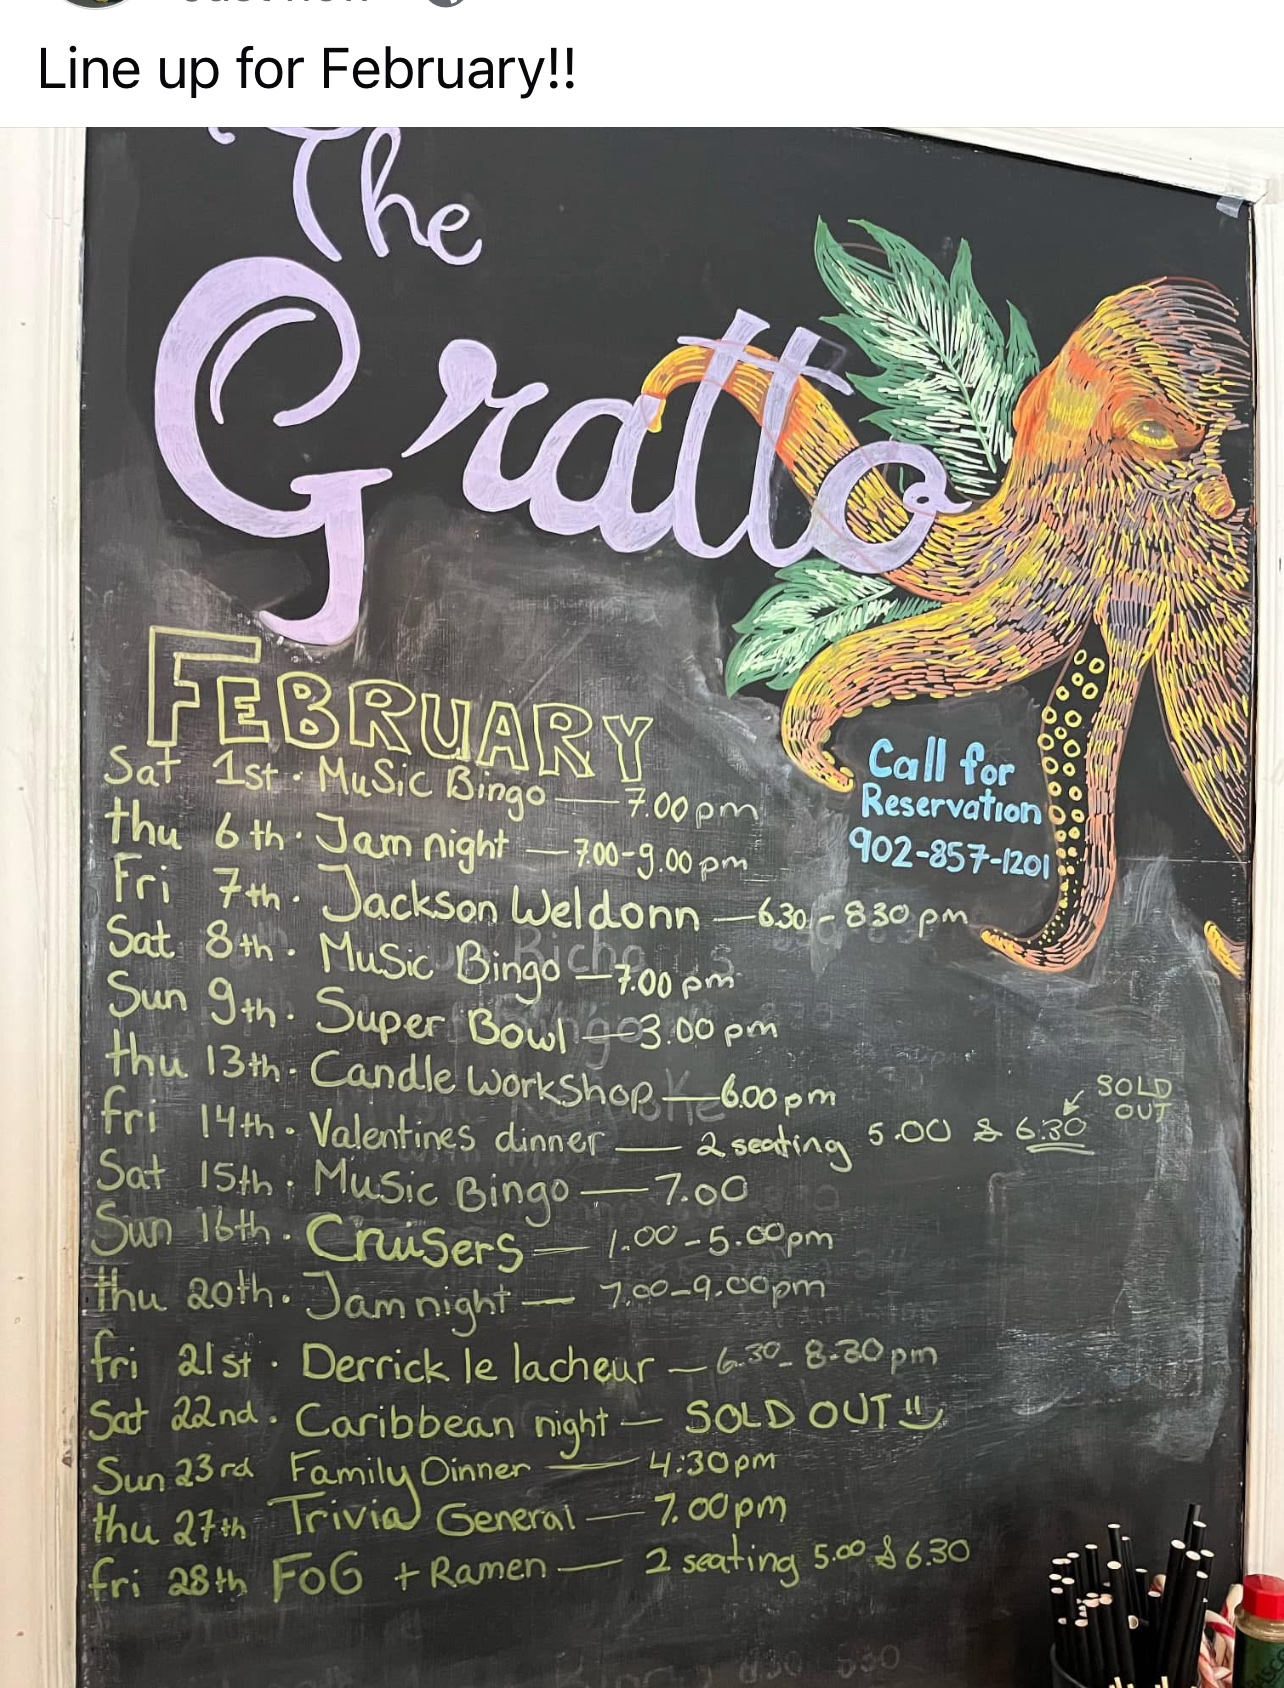 Line up for February!!
The
Gratto
FEBRUARY
Call for
Reservation
902-857-1201
Sat 1st. Music Bingo — 7.00 pm
thu 6th. Jam night — 7.00-9.00 pm
Fri 7th. Jackson Weldonn — 6.30 - 8.30 pm
Sat 8th. Music Bingo — 7.00 pm
Sun 9th. Super Bowl — 3.00 pm
thu 13th. Candle workshop — 6.00 pm
SOLD
OUT
fri 14th. Valentines dinner — 2 seating 5.00 & 6.30
Sat 15th. Music Bingo — 7.00
Sun 16th. Cruisers — 1.00 - 5.00pm
thu 20th. Jam night — 7.00-9.00pm
fri 21st. Derrick le lacheur — 6.30 - 8.30 pm
Sat 22nd. Caribbean night — SOLD OUT !!
Sun 23rd Family Dinner — 4:30pm
thu 27th Trivia General — 7.00pm
fri 28th FOG + Ramen — 2 seating 5.00 & 6.30